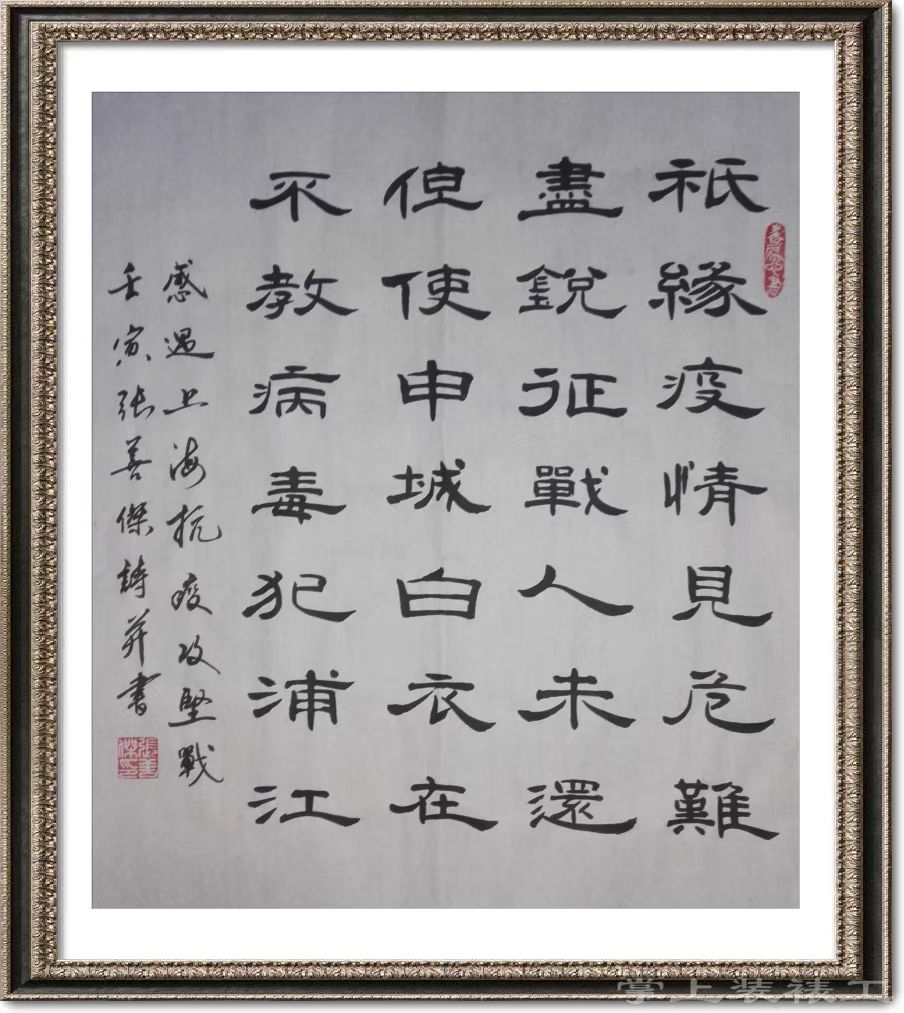 祇緣疫情見危難
盡銳征戰人未還
但使申城白衣在
不教病毒犯浦江
感遇上海抗疫攻堅戰
壬寅張善傑詩并書
張善傑印
掌上装裱工